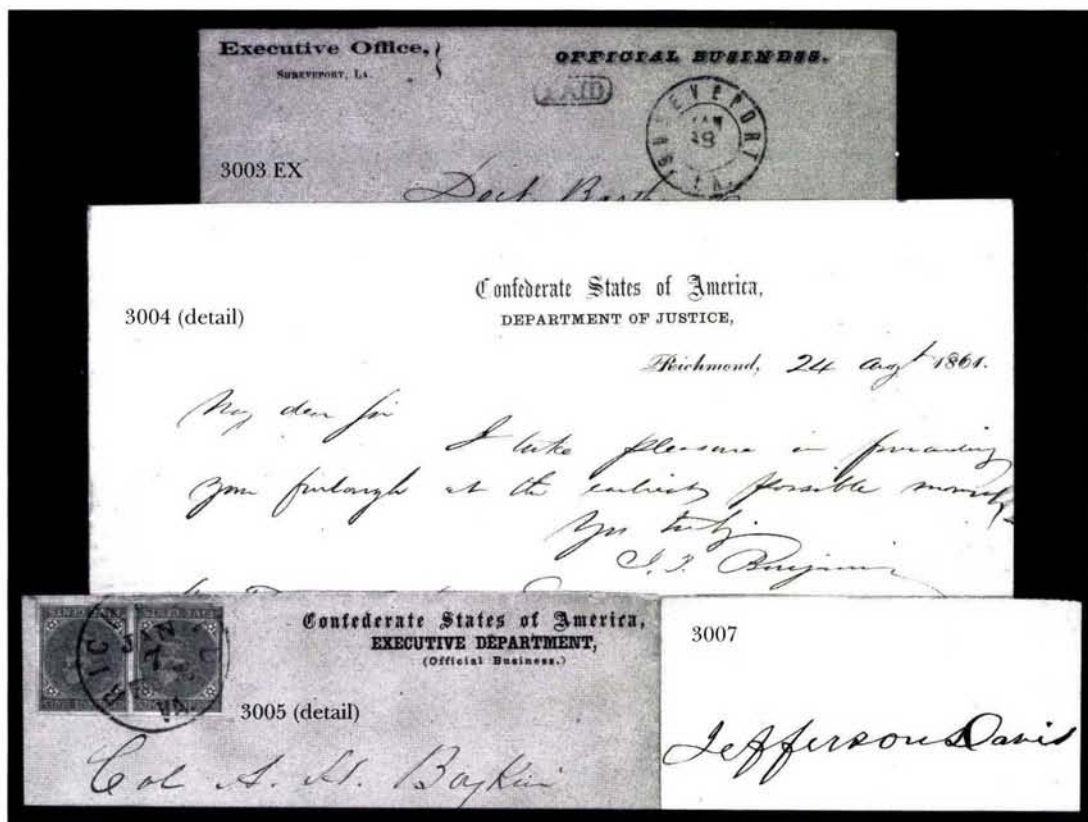 Executive Office,
SHREVEPORT, LA.
OFFICIAL BUSINESS.
PAID
SHREVEPORT LA.
JAN
3003 EX
Doct.
3004 (detail)
Confederate States of America,
DEPARTMENT OF JUSTICE,
Richmond, 24 Augt 1861.
My dear Sir
I take pleasure in forwarding
your furlough at the earliest possible moment
Yrs truly
J. P. Benjamin
JAN
7
VA
Confederate States of America,
EXECUTIVE DEPARTMENT,
(Official Business.)
3005 (detail)
Col A. H. Boykin
3007
Jefferson Davis